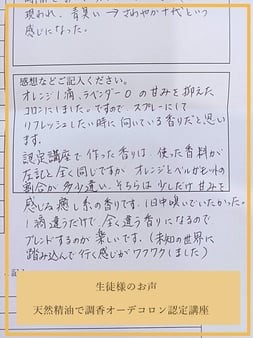 現われ、青臭い → さわやか十代という
感じになった。
感想などご記入ください。
オレンジ1滴、ラベンダー0 の甘みを抑えた
コロンにしました。ですので、スプレーにして
リフレッシュしたい時に向いている香りだと思い
ます。
認定講座で作った香りは、使った香料が
左記と全く同じですが、オレンジとベルガモットの
割合が多少違い、そちらは少しだけ甘みを
感じる癒し系の香りです。1日中嗅いでいたかった。
1滴違うだけで、全く違う香りになるので
ブレンドするのが楽しいです。(未知の世界に
踏み込んで行く感じがワクワクしました)
生徒様のお声
天然精油で調香オーデコロン認定講座